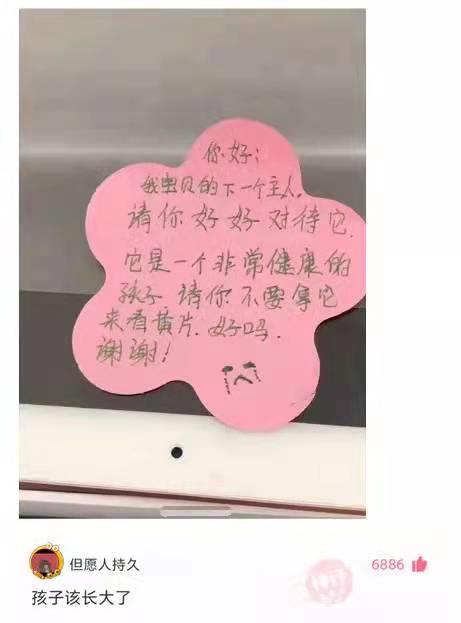 你好：
我宝贝的下一个主人，
请你好好对待它，
它是一个非常健康的
孩子，请你不要拿它
来看黄片，好吗，
谢谢！
但愿人持久
6886
孩子该长大了